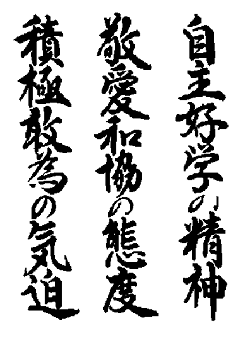 自主好学の精神
敬愛和協の態度
積極敢為の気迫